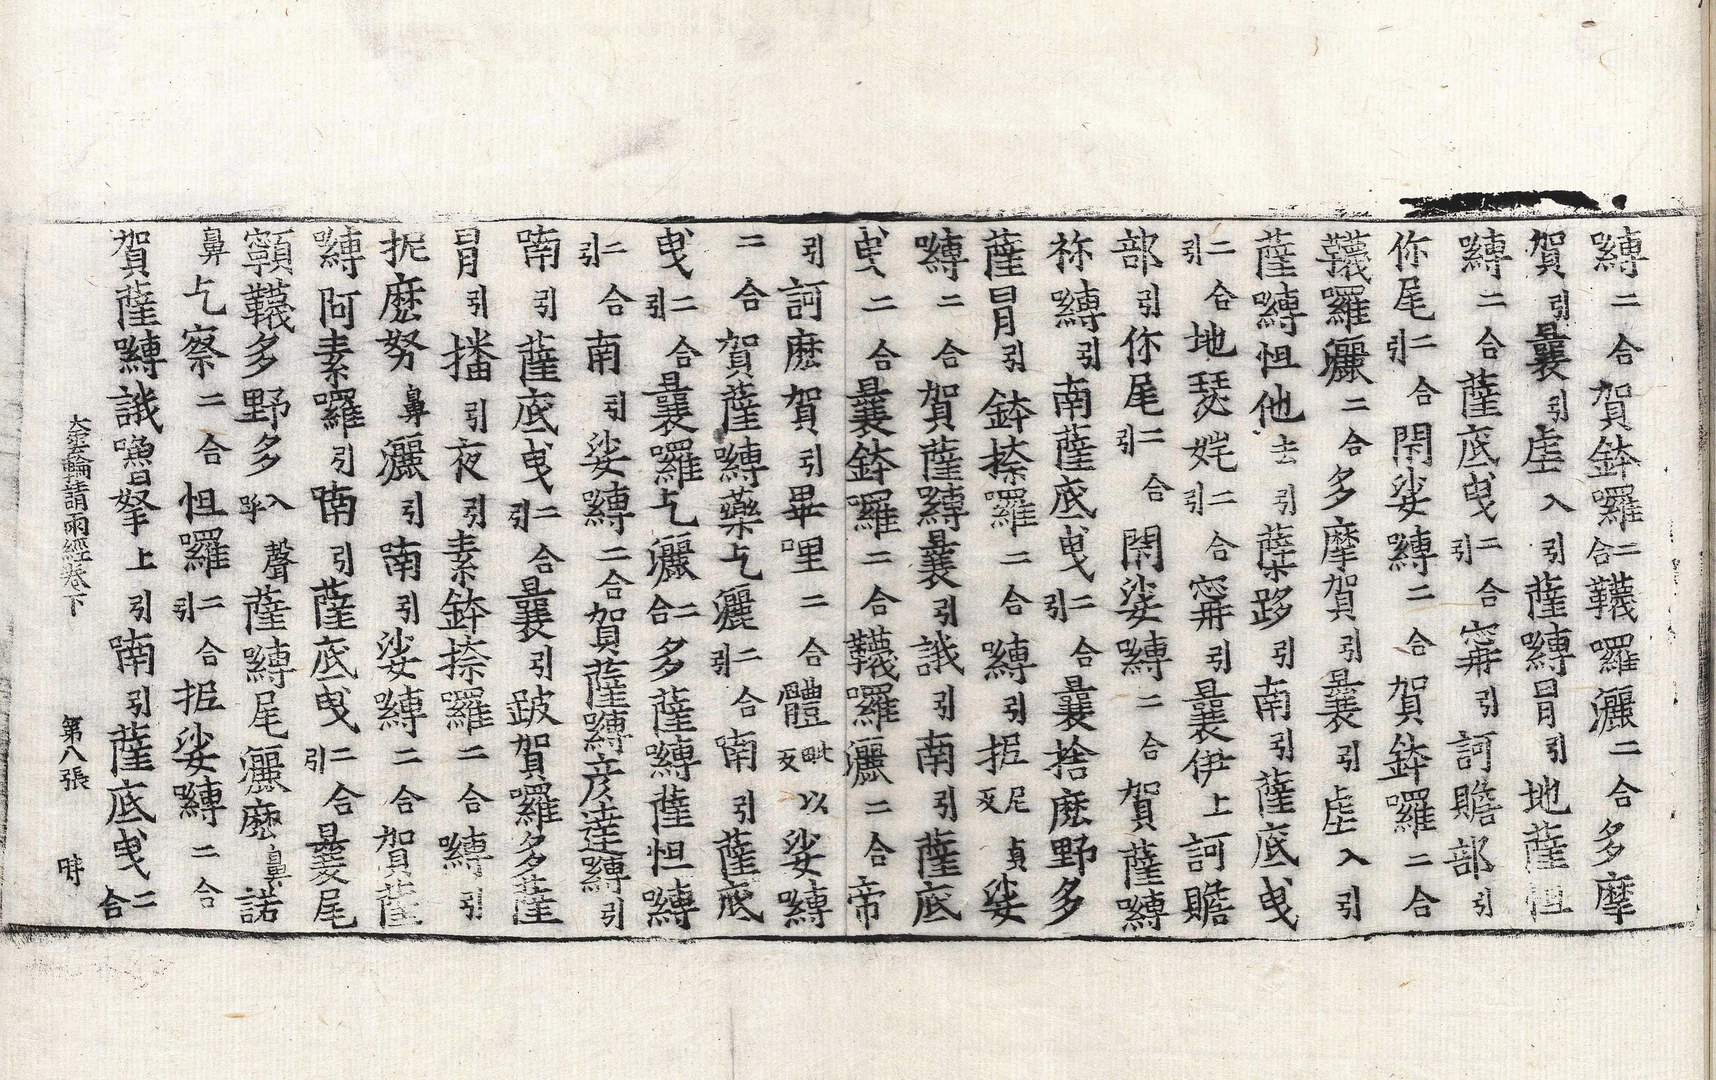 嚩二合賀鉢囉二合韈囉灑二合多摩
賀引曩引虐入引薩嚩冒引地薩怛
嚩二合薩底曳二合引寗引訶賧部引
你尾二合引閇娑嚩二合賀鉢囉二合
韈囉灑二合多摩賀引曩引虐入引
薩嚩怛他去引蘗跢引南引薩底曳
二合引地瑟姹二合引寗引曩伊上訶贍
部引你尾二合引閇娑嚩二合賀薩嚩
祢嚩引南薩底曳二合引曩捨麽野多
薩冒引鉢捺囉二合嚩引抳尼貞反娑
嚩二合賀薩嚩曩引誐引南引薩底
曳二合曩鉢囉二合韈囉灑二合帝
引訶麽賀引畢哩二合體毗以反娑嚩
二合賀薩嚩藥乞灑二合引喃引薩底
曳二合引曩囉乞灑二合多薩嚩薩怛嚩
二合引南引娑嚩二合賀薩嚩彦達嚩引
喃引薩底曳二合引曩引跛賀囉多薩
冒引播引夜引素鉢捺囉二合嚩引
抳麽努鼻灑引喃引娑嚩二合賀薩
嚩阿素囉引喃引薩底曳二合引曩尾
顊韈多野多入呼聲薩嚩尾灑麽鼻諾
鼻乞察二合怛囉二合引抳娑嚩二合
賀薩嚩誐嚕拏上引喃引薩底曳二合
大雲輪請雨經卷下 第八張 時